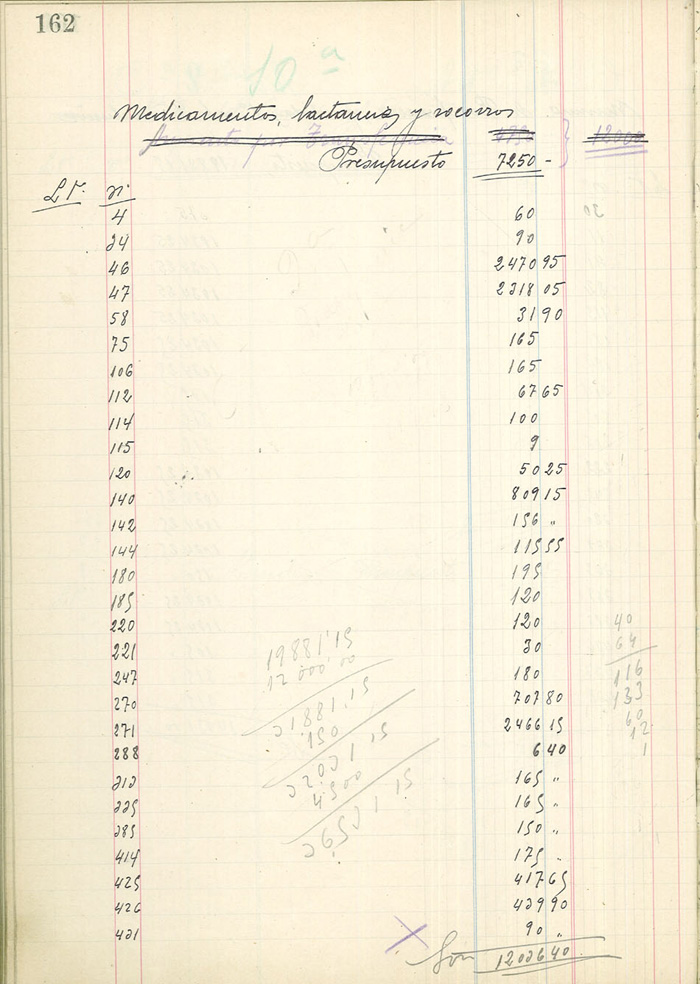 162
10ª
Medicamentos, lactancia, y socorros
Aumento por Transferencia 4750 12000
Presupuesto 7250 -
L. Nº
4 60
34 90
46 2470 95
47 2318 05
58 31 90
75 165
106 165
112 67 65
114 100
115 9
120 50 25
140 809 15
142 156 "
144 115 55
180 195
185 120
220 120 40
221 30 64
19881'15
247 180 116
12 000,00
270 707 80 133
271 2466 15 60
12
288 6 40 1
313 165 "
335 165 "
385 150 "
414 175 "
425 417 65
426 439 90
431 90 "
Son 12036 40